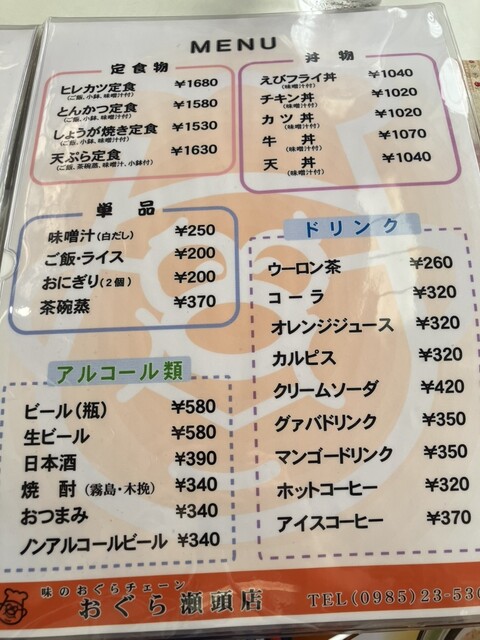 MENU
定食物
ヒレカツ定食 ¥1680
(ご飯、小鉢、味噌汁付)
とんかつ定食 ¥1580
(ご飯、小鉢、味噌汁付)
しょうが焼き定食 ¥1530
(ご飯、小鉢、味噌汁付)
天ぷら定食 ¥1630
(ご飯、茶碗蒸、味噌汁、小鉢付)
丼物
えびフライ丼 ¥1040
(味噌汁付)
チキン丼 ¥1020
(味噌汁付)
カツ丼 ¥1020
(味噌汁付)
牛丼 ¥1070
(味噌汁付)
天丼 ¥1040
(味噌汁付)
単品
味噌汁(白だし) ¥250
ご飯・ライス ¥200
おにぎり(2個) ¥200
茶碗蒸 ¥370
アルコール類
ビール(瓶) ¥580
生ビール ¥580
日本酒 ¥390
焼酎(霧島・木挽) ¥340
おつまみ ¥340
ノンアルコールビール ¥340
ドリンク
ウーロン茶 ¥260
コーラ ¥320
オレンジジュース ¥320
カルピス ¥320
クリームソーダ ¥420
グァバドリンク ¥350
マンゴードリンク ¥350
ホットコーヒー ¥320
アイスコーヒー ¥370
味のおぐらチェーン
おぐら瀬頭店 TEL(0985)23-530